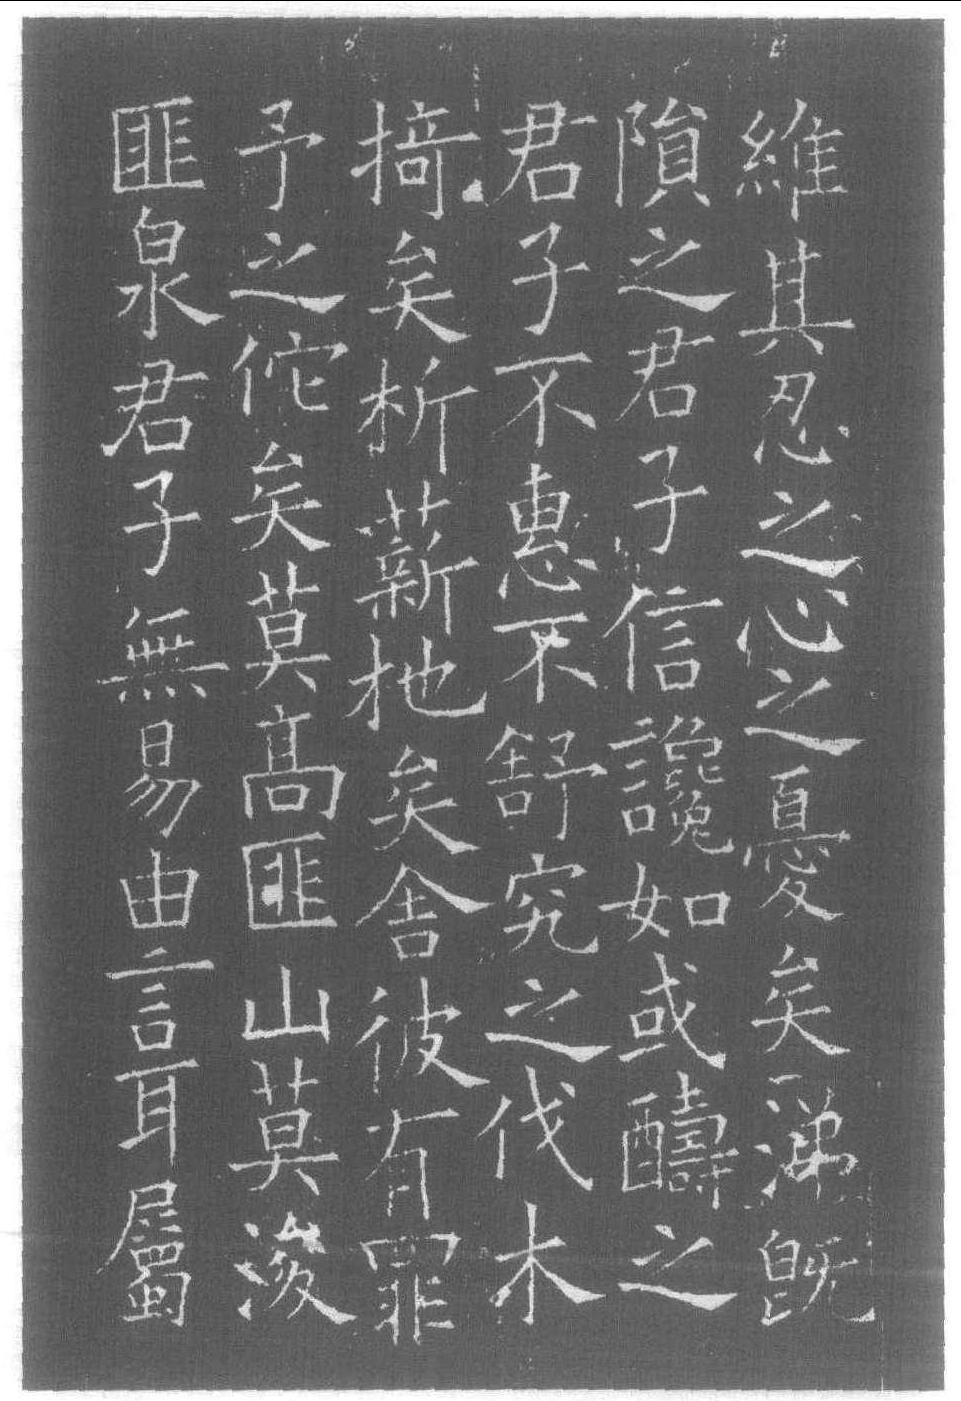 維其忍之心之憂矣涕既
隕之君子信讒如或醻之
君子不惠不舒究之伐木
掎矣析薪扡矣舍彼有罪
予之佗矣莫高匪山莫浚
匪泉君子無易由言耳屬